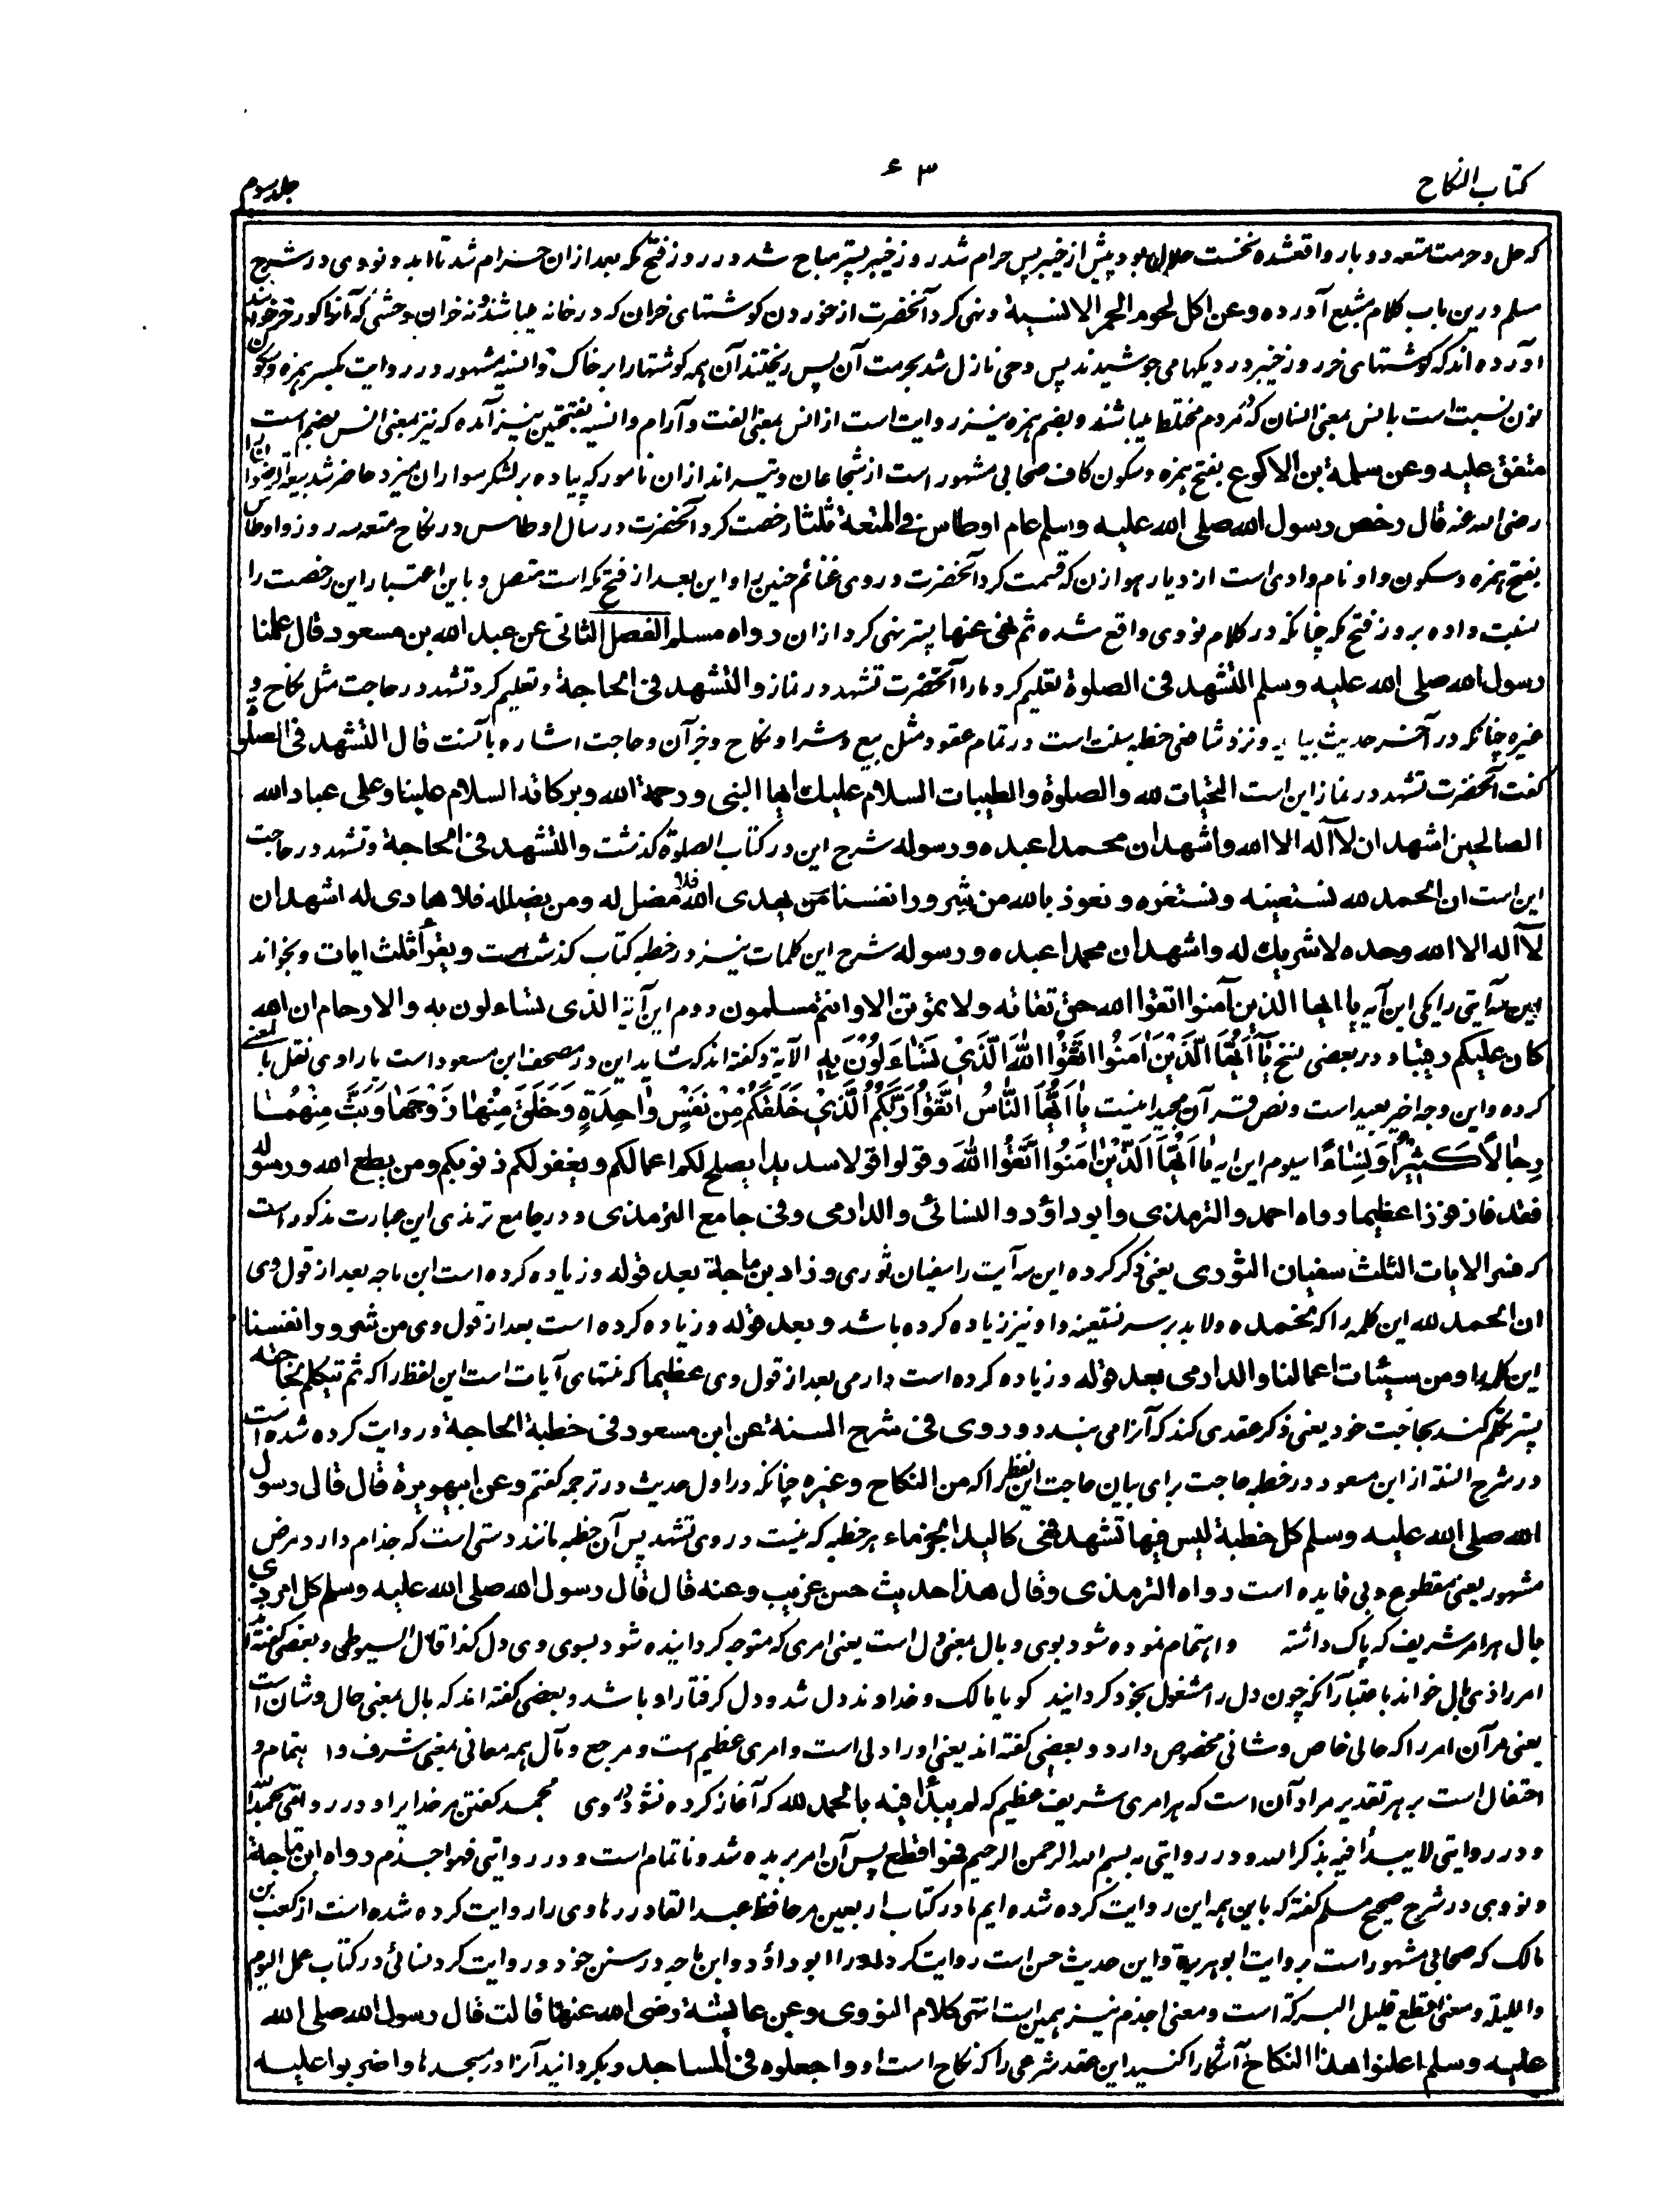 کتاب النکاح
۳ ۶
جلد سوم
که حل و حرمت متعه دو بار واقعشده نخست حلال بود پیش از خیبر پس حرام شد روز خیبر پستر مباح شد در روز فتح مکه بعد ازان حرام شد تا ابد و نووی در شرح
مسلم درین باب کلام مشبع آورده وعن اکل لحوم الحمر الانسیة ونهی کرد آنحضرت از خوردن گوشتهای خران که در خانه میباشند نه خران وحشی که آنرا گورخر خوانند
آورده اند که گوشتهای خر روز خیبر در دیگها می جوشیدند پس وحی نازل شد بحرمت آن پس ریختند آن همه گوشتها را بر خاک و انسیه مشهور در روایت بکسر همزه وسکون
نون نسبت است بانس بمعنی انسان که مردم مختلط میباشند و بضم همزه نیز روایت است از انس بمعنی الفت و آرام و انسیه بفتحتین نیز آمده که نیز بمعنی انس بضم است
متفق علیه وعن سلمة بن الاکوع بفتح همزه وسکون کاف صحابی مشهور است از شجاعان و تیراندازان نامور که پیاده بر لشکر سواران میزد حاضر شد بیعة الرضوان را
رضی الله عنه قال رخص رسول الله صلی الله علیه وسلم عام اوطاس فی المتعة ثلثا رخصت کرد آنحضرت در سال اوطاس در نکاح متعه سه روز و اوطاس
بفتح همزه وسکون واو نام وادی است از دیار هوازن که قسمت کرد آنحضرت در وی غنائم حنین را و این بعد از فتح مکه است متصل و باین اعتبار این رخصت را
نسبت داده بروز فتح مکه چنانکه در کلام نووی واقع شده ثم نهی عنها پستر نهی کرد ازان رواه مسلم الفصل الثانی عن عبد الله بن مسعود قال علمنا
رسول الله صلی الله علیه وسلم التشهد فی الصلوة تعلیم کرد ما را آنحضرت تشهد در نماز والتشهد فی الحاجة وتعلیم کرد تشهد در حاجت مثل نکاح و
غیره چنانکه در آخر حدیث بیاید و نزد شافعی خطبه سنت است در تمام عقود مثل بیع و شرا و نکاح و جز آن و حاجت اشاره بآنست قال التشهد فی الصلوة
گفت آنحضرت تشهد در نماز این است التحیات لله والصلوة والطیبات السلام علیك ایها النبی ورحمة الله وبرکاته السلام علینا وعلی عباد الله
الصالحین اشهد ان لا آله الا الله واشهد ان محمدا عبده ورسوله شرح این در کتاب الصلوة گذشت والتشهد فی الحاجة وتشهد در حاجت
این است ان الحمد لله نستعینه ونستغفره ونعوذ بالله من شرور انفسنا من یهدی الله فلا مضل له ومن یضلله فلا هادی له اشهد ان
لا آله الا الله وحده لا شریك له واشهد ان محمدا عبده ورسوله شرح این کلمات نیز در خطبه کتاب گذشت است ویقرأ ثلث ایات وبخواند
این سه آیتی را یکی این آیه یا ایها الذین آمنوا اتقوا الله حق تقاته ولا تموتن الا وانتم مسلمون دوم این آیة الذی تساءلون به والارحام ان الله
کان علیکم رقیبا و در بعضی نسخ یَآ اَیُّهَا الَّذِیْنَ اٰمَنُوا اتَّقُوا اللّٰهَ الَّذِیْ تَسَاءَلُوْنَ بِهٖ الآیة وگفته اند که شاید این در مصحف ابن مسعود است یا راوی نقل بالمعنی
کرده و این وجه اخیر بعید است و نص قرآن مجید اینست یٰا اَیُّهَا النَّاسُ اتَّقُوْا رَبَّکُمُ الَّذِیْ خَلَقَکُمْ مِّنْ نَفْسٍ وَّاحِدَةٍ وَّخَلَقَ مِنْهَا زَوْجَهَا وَبَثَّ مِنْهُمَا
رِجَالًا کَثِیْرًا وَّنِسَاءً سیوم این ایه یٰا اَیُّهَا الَّذِیْنَ اٰمَنُوا اتَّقُوا اللّٰهَ وقولوا قولا سدیدا یصلح لکم اعمالکم ویغفر لکم ذنوبکم ومن یطع الله ورسوله
فقد فاز فوزا عظیما رواه احمد والترمذی وابو داؤد والنسائی والدارمی وفی جامع الترمذی ودر جامع ترمذی این عبارت مذکور است
که فسر الایات الثلث سفیان الثوری یعنی ذکر کرده این سه آیت را سفیان ثوری وزاد بن ماجة بعد قوله وزیاده کرده است ابن ماجه بعد از قول وی
ان الحمد لله این کلمه را که نحمده ولابد بر سر نستعینه واو نیز زیاده کرده باشد وبعد قوله وزیاده کرده است بعد از قول وی من شرور انفسنا
این کلمه را ومن سیئات اعمالنا والدارمی بعد قوله وزیاده کرده است دارمی بعد از قول وی عظیما که منتهای آیات است این لفظ را که ثم تتکلم بحاجته
پستر تکلم کند بحاجت خود یعنی ذکر عقدی کند که آنرا می بندد وروی فی شرح السنة عن ابن مسعود فی خطبة الحاجة وروایت کرده شده است
در شرح السنة از ابن مسعود در خطبه حاجت برای بیان حاجت این لفظ را که من النکاح وغیره چنانکه در اول حدیث در ترجمه گفتم وعن ابیهریرة قال قال رسول
الله صلی الله علیه وسلم کل خطبة لیس فیها تشهد فهی کالید الجذماء هر خطبه که نیست در وی تشهد پس آن خطبه مانند دستی است که جذام دارد مرض
مشهور یعنی مقطوع و بی فایده است رواه الترمذی وقال هذا حدیث حسن غریب وعنه قال قال رسول الله صلی الله علیه وسلم کل امر ذی
بال هر امر شریف که باک داشته واهتمام نموده شود بوی و بال بمعنی دل است یعنی امری که متوجه گردانیده شود بسوی وی دل کذا قال السیوطی وبعضی گفته اند
امر را ذی بال خواند باعتبار آنکه چون دل را مشغول بخود گردانید گویا مالک و خداوند دل شد و دل گرفتار او باشد وبعضی گفته اند که بال بمعنی حال و شان است
یعنی مر آن امر را که حالی خاص و شانی مخصوص دارد و بعضی گفته اند یعنی او را دلی است و امری عظیم است و مرجع و مآل همه معانی بمعنی شرف و اهتمام و
احتفال است بر هر تقدیر مراد آن است که هر امری شریف عظیم که لم یبدأ فیه بالحمد لله که آغاز کرده نشود در وی بحمد گفتن مر خدایرا و در روایتی بحمد الله
و در روایتی لا یبدأ فیه بذکر الله و در روایتی به بسم الله الرحمن الرحیم فهو اقطع پس آن امر بریده شد و ناتمام است و در روایتی فهو اجذم رواه ابن ماجة
و نووی در شرح صحیح مسلم گفته که باین همه این روایت کرده شده ایم ما در کتاب اربعین مر حافظ عبد القادر رهاوی را روایت کرده شده است از کعب بن
مالک که صحابی مشهور است بروایت ابوهریرة و این حدیث حسن است روایت کرد او را ابو داؤد و ابن ماجه در سنن خود و روایت کرد نسائی در کتاب عمل الیوم
واللیلة و معنی اقطع قلیل البرکة است و معنی اجذم نیز همین است انتهی کلام النووی وعن عایشة رضی الله عنها قالت قال رسول الله صلی الله
علیه وسلم اعلنوا هذا النکاح آشکارا کنید این عقد شرعی را که نکاح است او واجعلوه فی المساجد وبگردانید آنرا در مسجدها واضربوا علیه